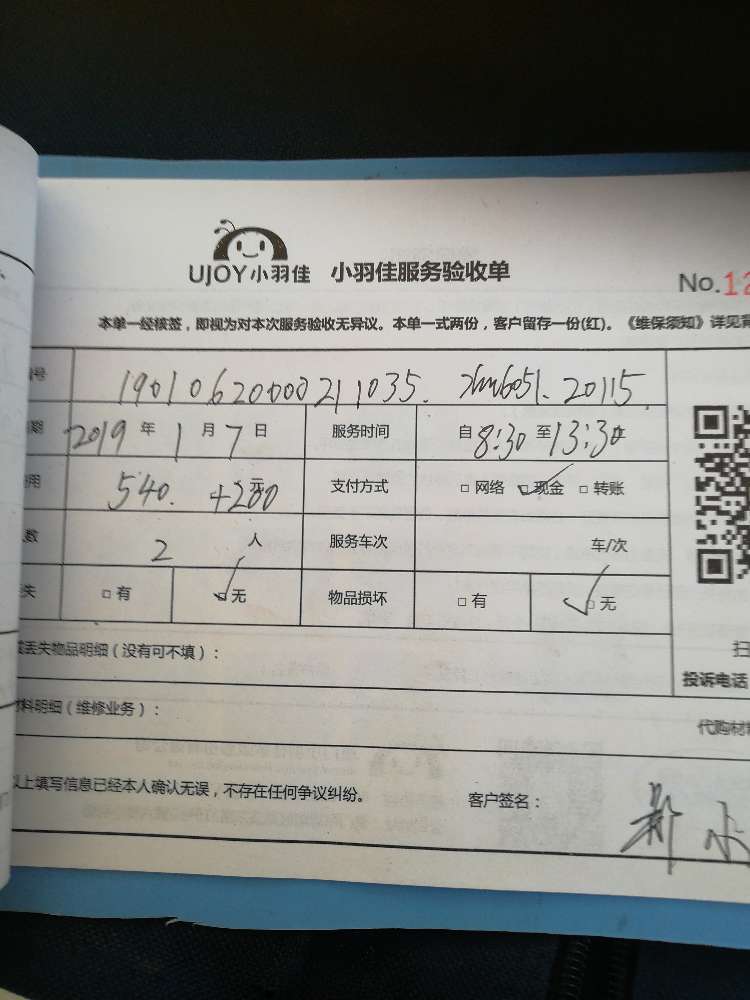 UJOY小羽佳 小羽佳服务验收单
No.12
本单一经核签，即视为对本次服务验收无异议。本单一式两份，客户留存一份(红)。《维保须知》详见背
号 19010620000211035. 20115
期 2019 年 1 月 7 日 服务时间 自 8:30 至 13:30
用 540. +200 元 支付方式 □ 网络 ☑ 现金 □ 转账
数 2 人 服务车次 车/次
失 □ 有 ☑ 无 物品损坏 □ 有 ☑ 无
丢失物品明细（没有可不填）：
扫
投诉电话
料明细（维修业务）：
代购材料
以上填写信息已经本人确认无误，不存在任何争议纠纷。 客户签名：